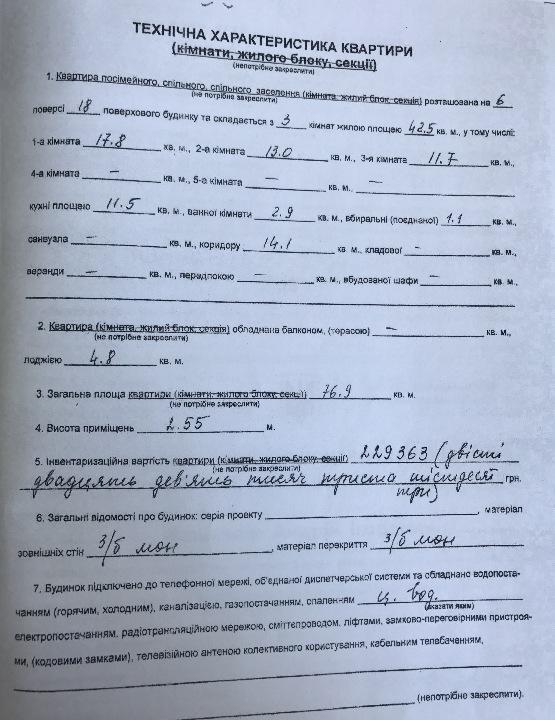 ТЕХНІЧНА ХАРАКТЕРИСТИКА КВАРТИРИ
(кімнати, жилого блоку, секції)
(непотрібне закреслити)
1. Квартира посімейного, спільного, спільного заселення (кімната, жилий блок, секція) розташована на 6
(не потрібне закреслити)
поверсі 18 поверхового будинку та складається з 3 кімнат жилою площею 42.5 кв. м., у тому числі:
1-а кімната 17.8 кв. м., 2-а кімната 13.0 кв. м., 3-я кімната 11.7 кв. м.,
4-а кімната — кв. м., 5-а кімната — кв. м., —
кухні площею 11.5 кв. м., ванної кімнати 2.9 кв. м., вбиральні (поєднаної) 1.1 кв. м.,
санвузла — кв. м., коридору 14.1 кв. м., кладової — кв. м.,
веранди — кв. м., передпокою — кв. м., вбудованої шафи — кв. м.,
2. Квартира (кімната, жилий блок, секція) обладнана балконом, (терасою) — кв. м.,
(не потрібне закреслити)
лоджією 4.8 кв. м.
3. Загальна площа квартири (кімнати, жилого блоку, секції) 76.9 кв. м.
(не потрібне закреслити)
4. Висота приміщень 2.55 м.
5. Інвентаризаційна вартість квартири (кімнати, жилого блоку, секції) 229363 (двісті
(не потрібне закреслити)
двадцять дев'ять тисяч триста шістдесят грн.
три)
6. Загальні відомості про будинок: серія проекту , матеріал
зовнішніх стін з/б мон , матеріал перекриття з/б мон
7. Будинок підключено до телефонної мережі, об'єднаної диспетчерської системи та обладнано водопоста-
чанням (горячим, холодним), каналізацією, газопостачанням, опаленням ц. вод.
(вказати яким)
електропостачанням, радіотрансляційною мережою, сміттєпроводом, ліфтами, замково-переговорними пристроя-
ми, (кодовими замками), телевізійною антеною колективного користування, кабельним телебаченням,
(непотрібне закреслити).